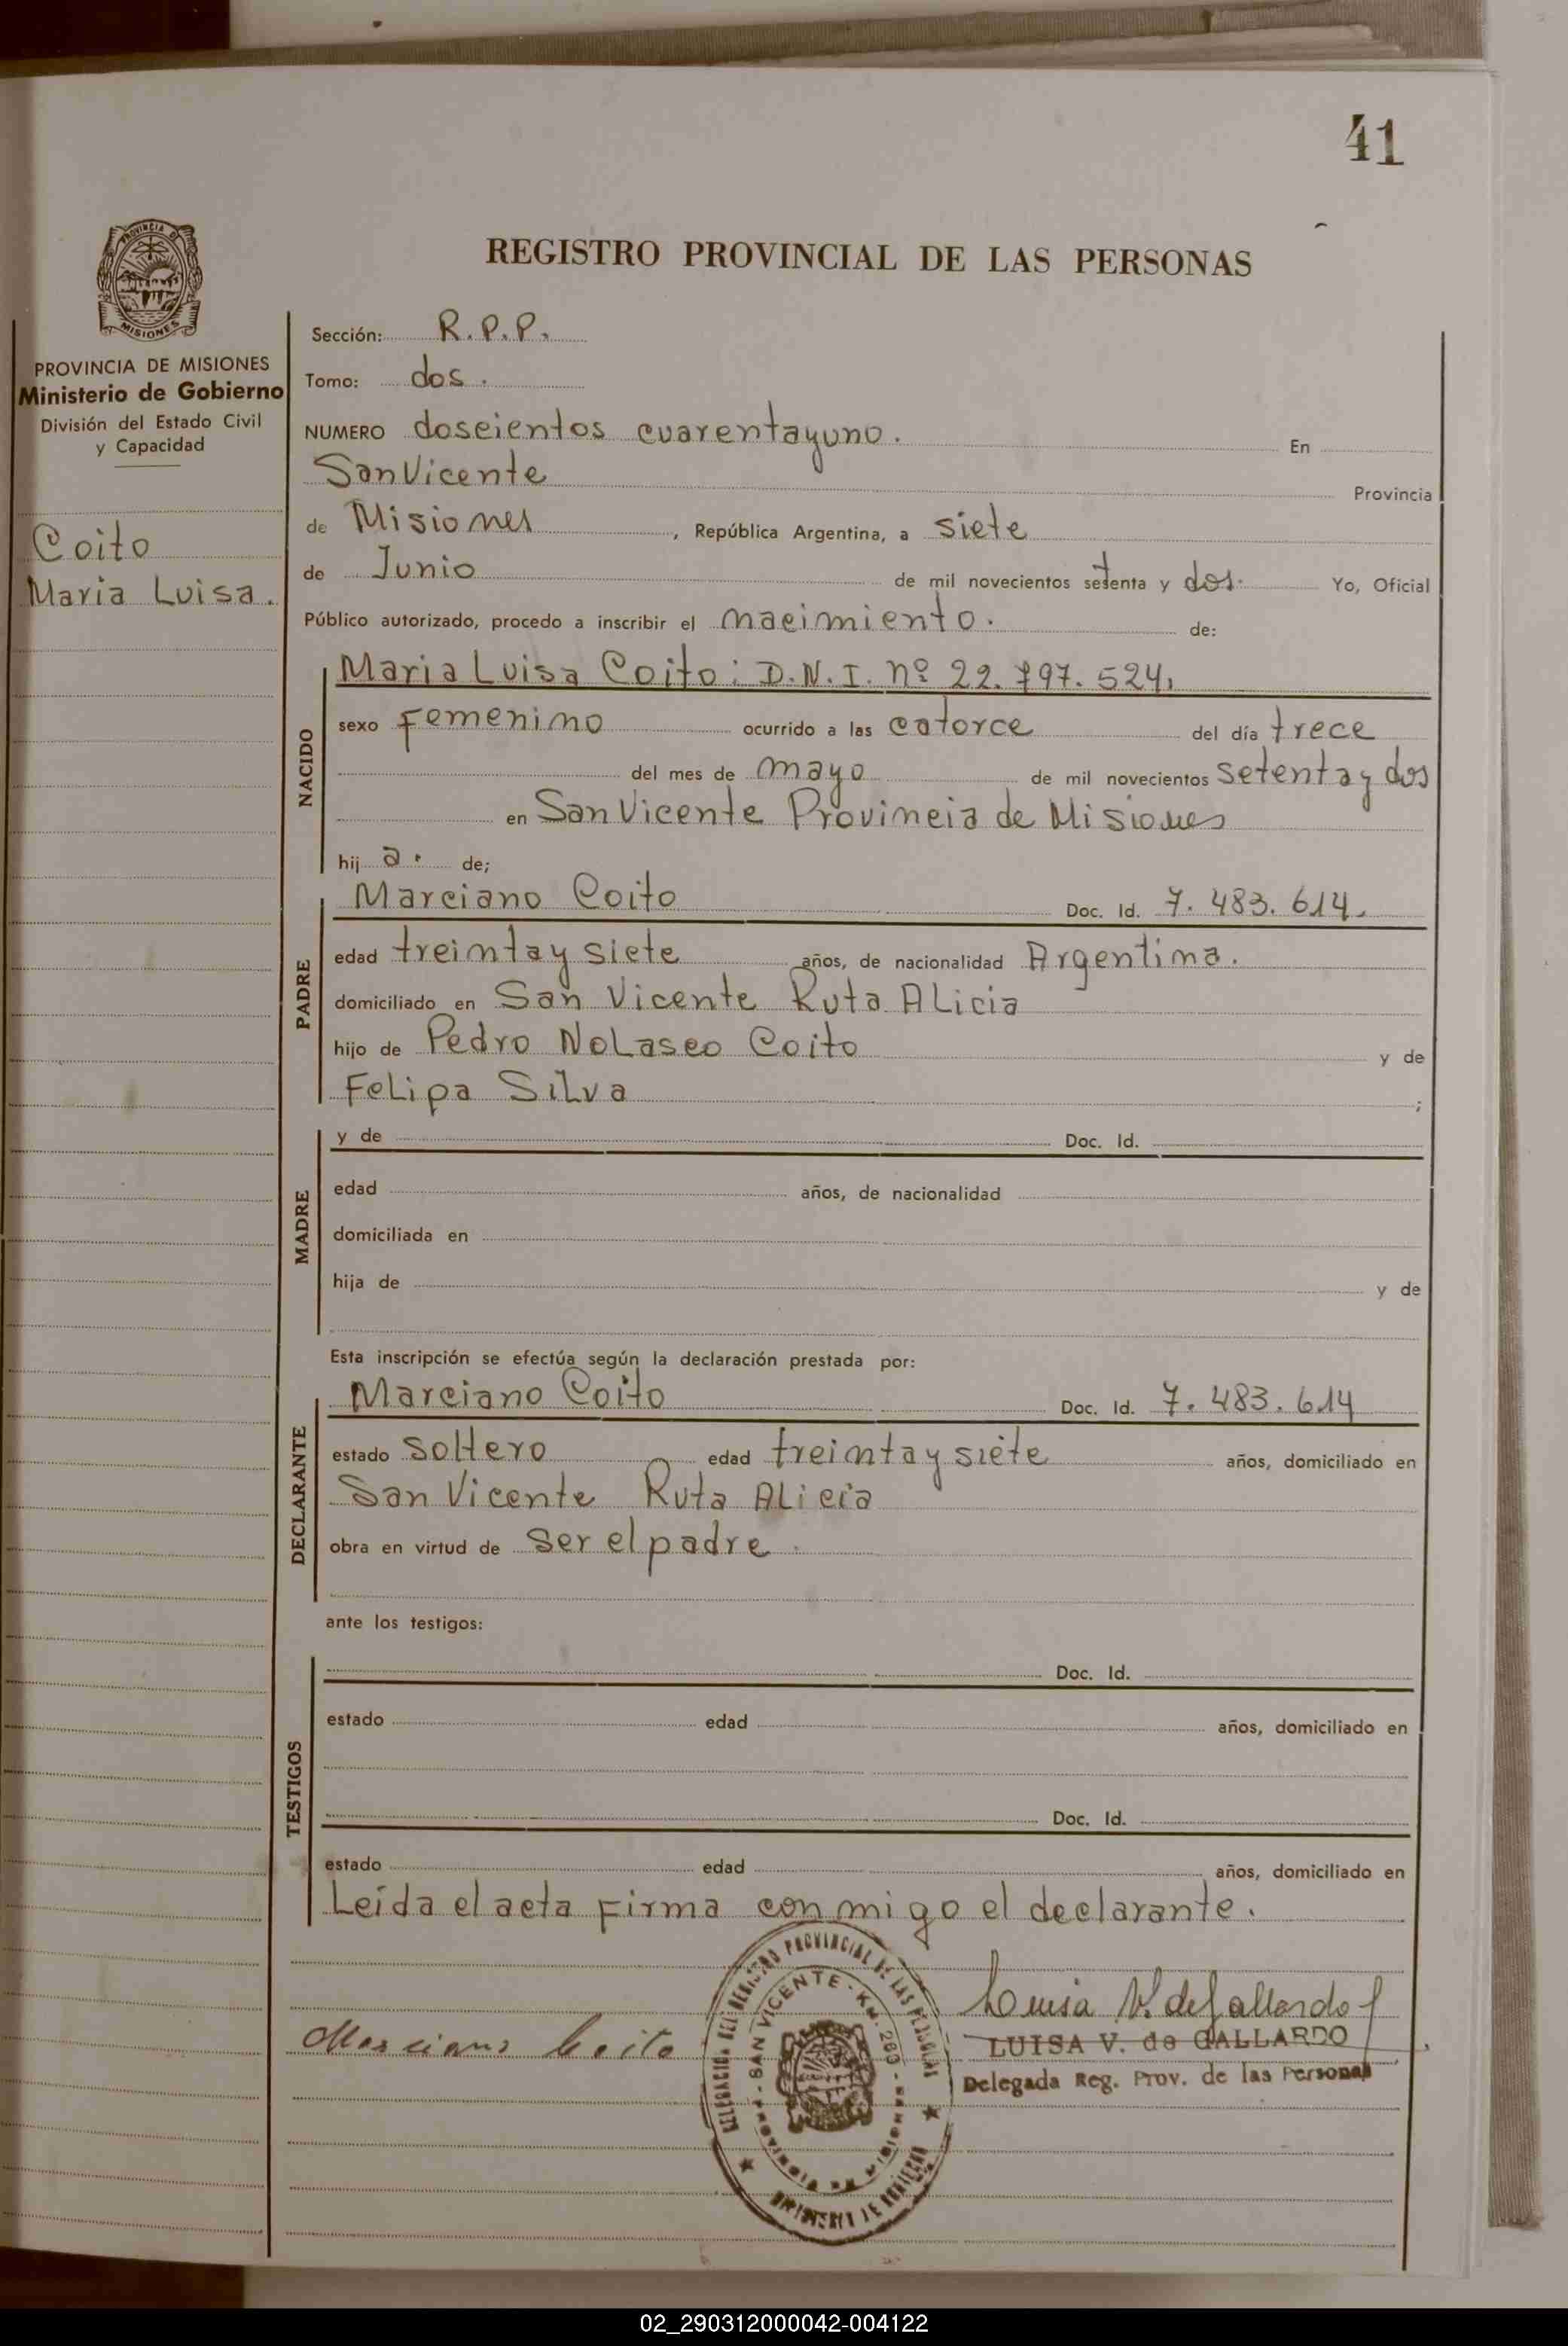 41
REGISTRO PROVINCIAL DE LAS PERSONAS
PROVINCIA DE MISIONES
PROVINCIA DE MISIONES
Ministerio de Gobierno
División del Estado Civil
y Capacidad
Coito
Maria Luisa.
Sección: R.P.P.
Tomo: dos.
NUMERO doseientos cuarentayuno. En
San Vicente Provincia
de Misiones, República Argentina, a siete
de Junio de mil novecientos setenta y dos. Yo, Oficial
Público autorizado, procedo a inscribir el nacimiento. de:
NACIDO
Maria Luisa Coito: D.N.I. nº 22.797.524.
sexo Femenino ocurrido a las catorce del día trece
del mes de mayo de mil novecientos setenta y dos
en San Vicente Provincia de Misiones
hij a. de;
PADRE
Marciano Coito Doc. Id. 7.483.614.
edad treinta y siete años, de nacionalidad Argentina.
domiciliado en San Vicente Ruta Alicia
hijo de Pedro Nolasco Coito y de
Felipa Silva ;
MADRE
y de Doc. Id.
edad años, de nacionalidad
domiciliada en
hija de y de
Esta inscripción se efectúa según la declaración prestada por:
DECLARANTE
Marciano Coito Doc. Id. 7.483.614
estado soltero edad treinta y siete años, domiciliado en
San Vicente Ruta Alicia
obra en virtud de ser el padre.
ante los testigos:
TESTIGOS
Doc. Id.
estado edad años, domiciliado en
Doc. Id.
estado edad años, domiciliado en
Leída el acta firma conmigo el declarante.
Marciano Coito
DEL REGISTRO PROVINCIAL DE LAS PERSONAS
SAN VICENTE - KM.
PROVINCIA DE MISIONES
MINISTERIO DE GOBIERNO
Luisa V. de Gallardo
LUISA V. de GALLARDO
Delegada Reg. Prov. de las Personas
02_290312000042-004122